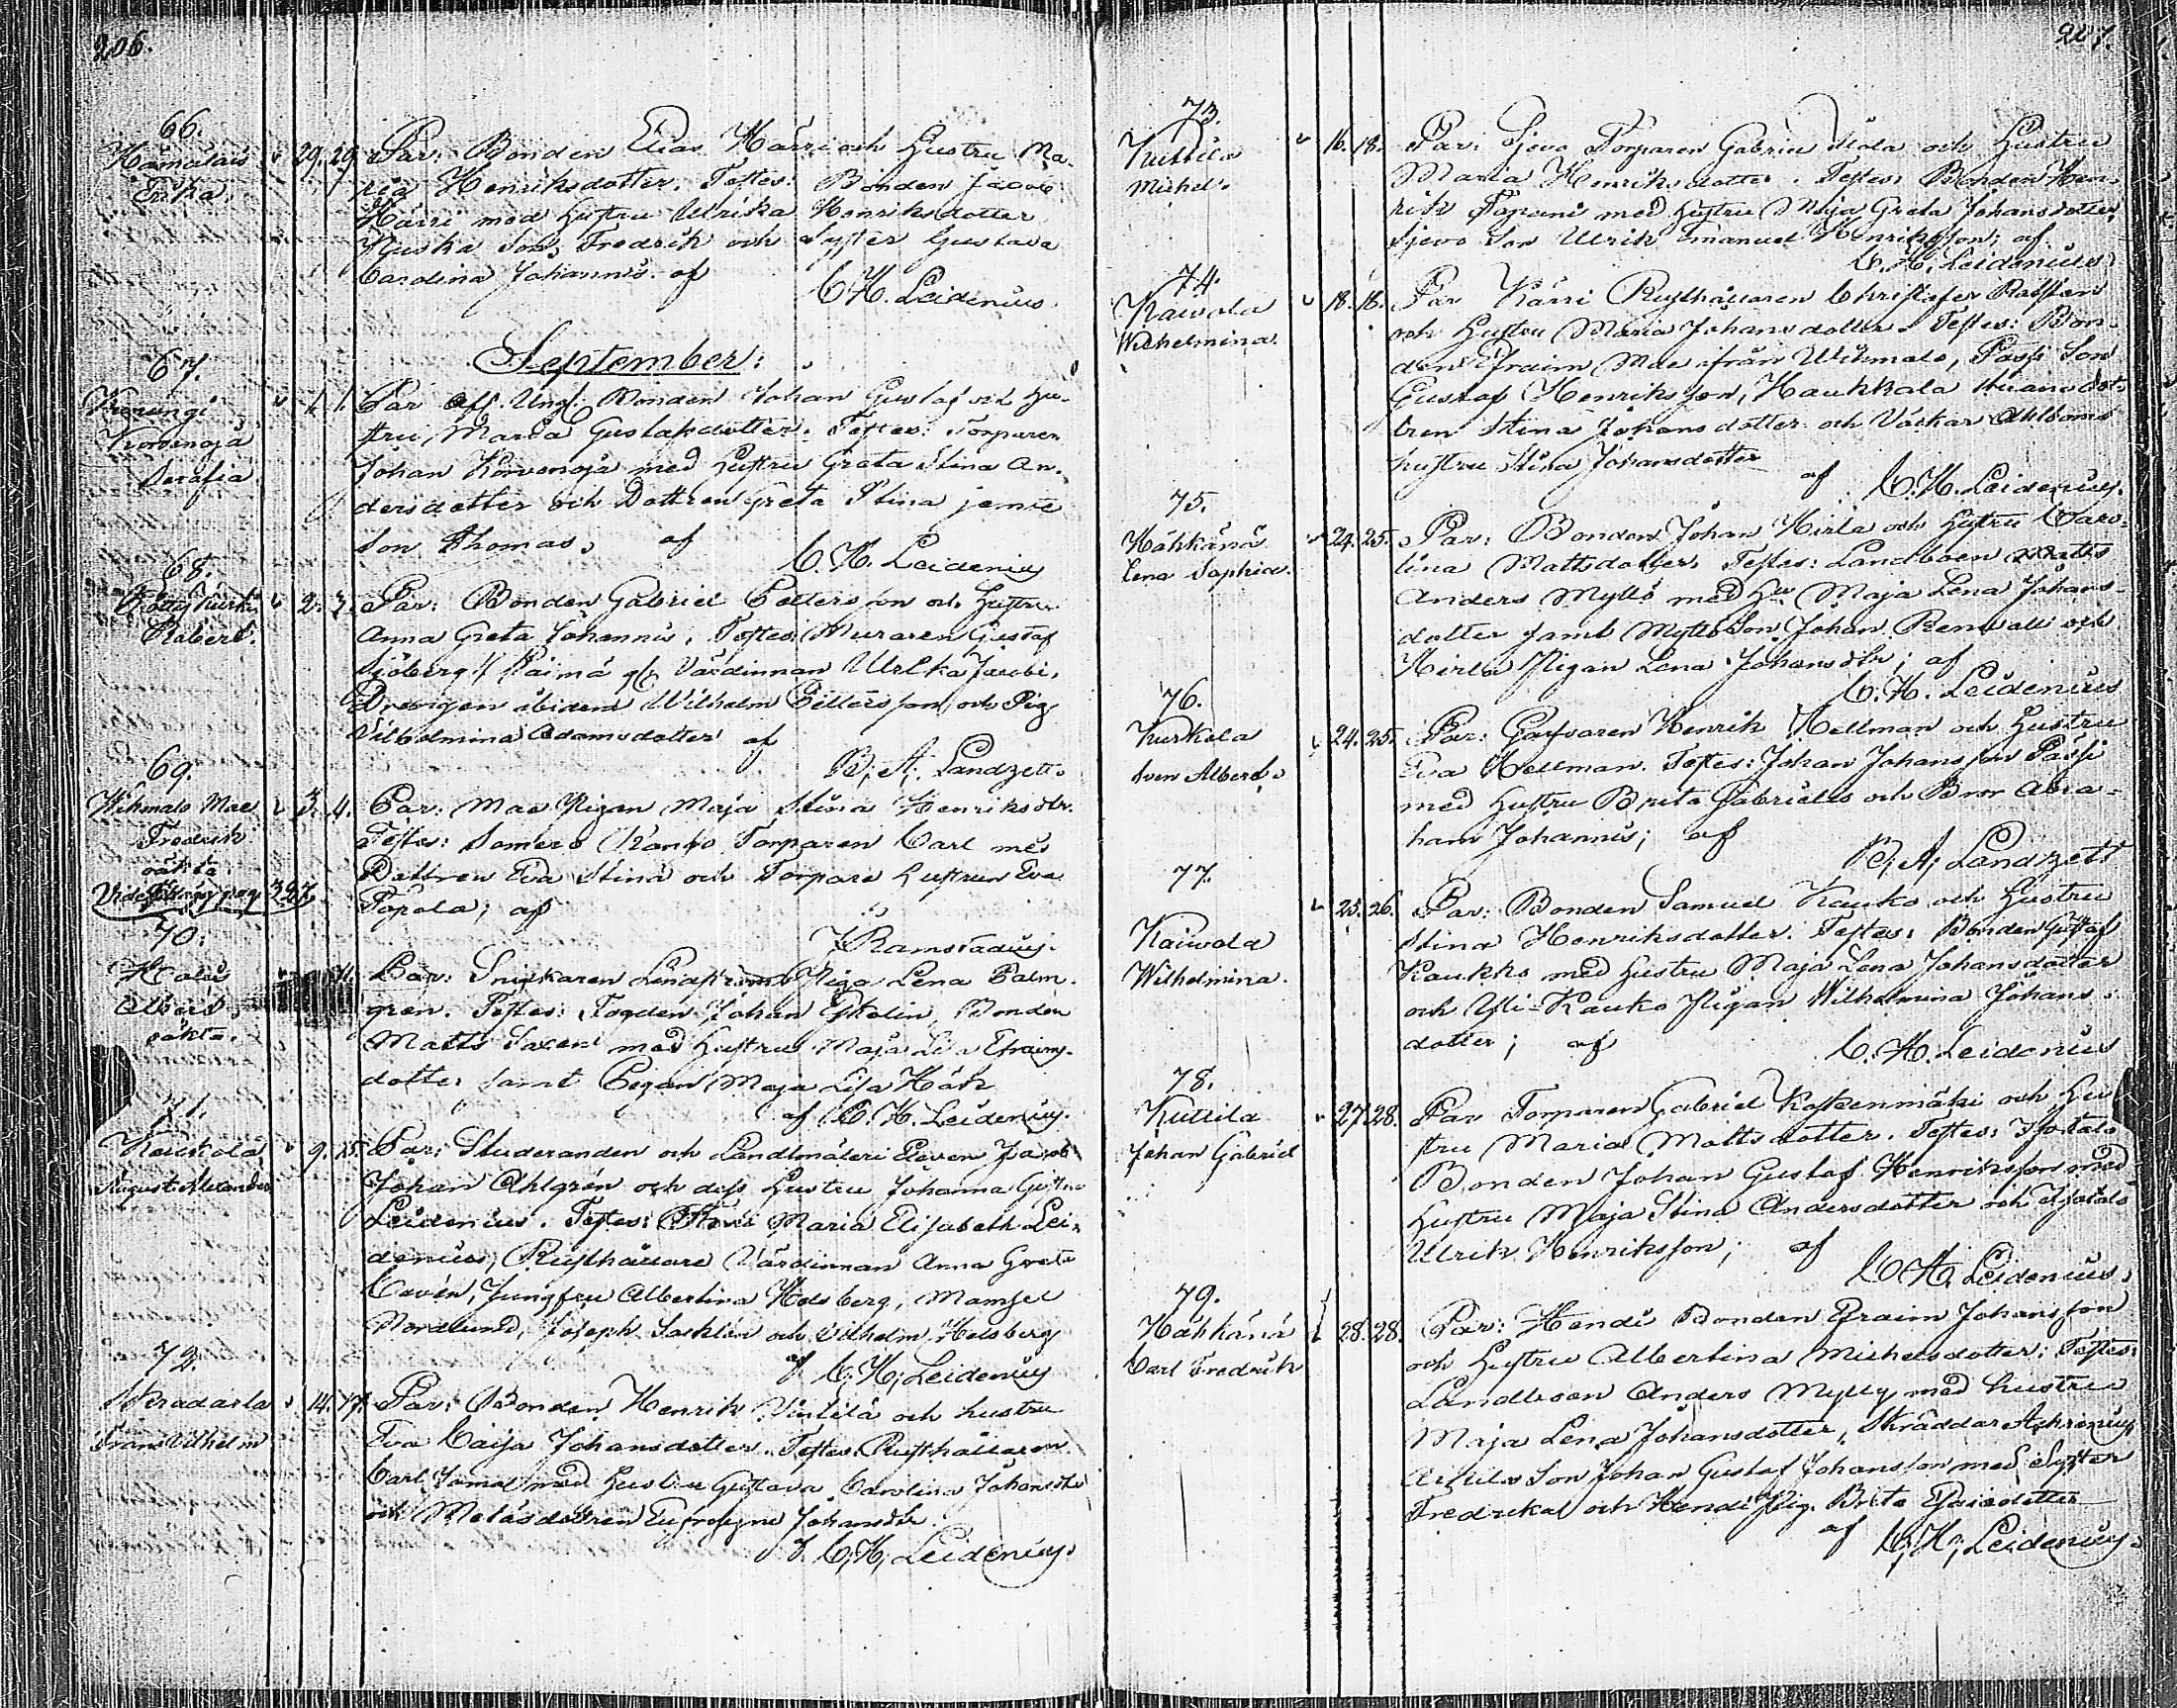 206.
66.
Hämäläis
Erika.
29. 29. Par: Bonden Elias Härri och Hustru Ma-
ria Henriksdotter. Testes: Bonden Jacob
Härri med Hustru Ulrika Henriksdotter
Son Fredrik och Syster Gustava
Carolina Johannis. af
C. H. Leidenius.
September:
67.
Serafia
1. 1. Par Bonden Johan Gustaf och Hu-
stru Maria Gustafsdotter. Testes: Torparen
Johan med Hustru Greta Stina An-
dersdotter och Dottren Greta Stina jemte
Son Thomas, af
C. H. Leidenius
68.
Robert.
2. 3. Par: Bonden Gabriel Pettersson och Hustru
Anna Greta Johannis. Testes: Muraren Gustaf
Sjöberg, Värdinnan Ulrika Jacobi,
Drengen ibidem Wilhelm och Pig
Vilhelmina Adamsdotter af
B. A. Landzett.
69.
Wihmalo Mae
Fredrik
oäkta
Vide pag 327.
3. 4. Par: Mae Pigan Maja Stina Henriksdtr.
Testes: Somero Torparen Carl med
Dottren Eva Stina och Torpare Hustrun Eva
Topola; af
J Ramstadius.
70.
Albert,
oäkta.
11. Par: Snickaren Lindströms Piga Lena Palm-
gren. Testes: Fogden Johan Bonden
Matts Saxen med Hustru Maja Lisa Efraims-
dotter samt Pigan Maja Lisa
af C. H. Leidenius.
71.
Koukola
August Alexander
9. 15. Par: Studeranden och Landtmäteri Eleven Jacob
Johan Ahlgrén och dess Hustru Johanna Gustava
Leidenius. Testes: Maria Elisabeth Lei-
denius, Rusthållare Värdinnan Anna Greta
Cavén, Jungfru Albertina Helsberg, Mamsel
Nordlund, Joseph Sacklén och Vilhelm Helsberg
af C. H. Leidenius
72.
Frans Vilhelm
14. 17. Par: Bonden Henrik och hustru
Eva Caisa Johansdotter. Testes: Rusthållaren
Carl med Hustru Gustava Carolina Johansdtr
och Eufrosyne Johansdtr.
af C. H. Leidenius.
207.
73.
Kuttila
Michel.
16. 18. Par: Sjevo Torparen Gabriel och Hustru
Maria Henriksdotter. Testes: Bonden Hen-
rik Tapani med Hustru Maja Greta Johansdotter,
Sjevo Son Ulrik Emanuel Henriksson; af
C. H. Leidenius.
74.
Kaivola
Wilhelmina.
18. 18. Par Kärri Rusthållaren Christofer
och Hustru Maria Johansdotter. Testes: Bon-
den Efraim Mae ifrån Wihmalo, Passi Son
Gustaf Henriksson, Haukkala
Stina Johansdotter och Ahlboms
hustru Stina Johansdotter
af C. H. Leidenius.
75.
Hähkänä
Lena Sophia.
24. 25. Par: Bonden Johan Hirla och Hustru Caro-
lina Mattsdotter. Testes: Landboen
Anders Myllö med Hu Maja Lena Johans-
dotter samt Myllö Son Johan Renwall och
Hirla Pigan Lena Johansdtr; af
C. H. Leidenius
76.
Kurkola
Sven Albert.
24. 25. Par: Garfvaren Henrik Hellman och Hustru
Eva Hellman. Testes: Johan Johansson Passi
med Hustru Brita Gabriels och Bror Abra-
ham Johannis; af
B. A. Landzett
77.
Kaivola
Wilhelmina.
25. 26. Par: Bonden Samuel Kauko och Hustru
Stina Henriksdotter. Testes: Bonden Gustaf
Kaukko med Hustru Maja Lena Johansdotter
och Yli-Kauko Pigan Wilhelmina Johans-
dotter; af
C. H. Leidenius
78.
Kuttila
Johan Gabriel
27. 28. Par Torparen Gabriel Koskenmäki och Hu-
stru Maria Mattsdotter. Testes:
Bonden Johan Gustaf Henriksson med
Hustru Maja Stina Andersdotter och
Ulrik Henriksson; af
C. H. Leidenius.
79.
Hähkänä
Carl Fredrik
28. 28. Par: Hendi Bonden Efraim Johansson
och Hustru Albertina Michelsdotter; Testes:
Landboen Anders Mylly med hustru
Maja Lena Johansdotter, Skräddar
Son Johan Gustaf Johansson med Syster
Fredrika och Hendi Pig. Brita Esaiedotter
af C. H. Leidenius.